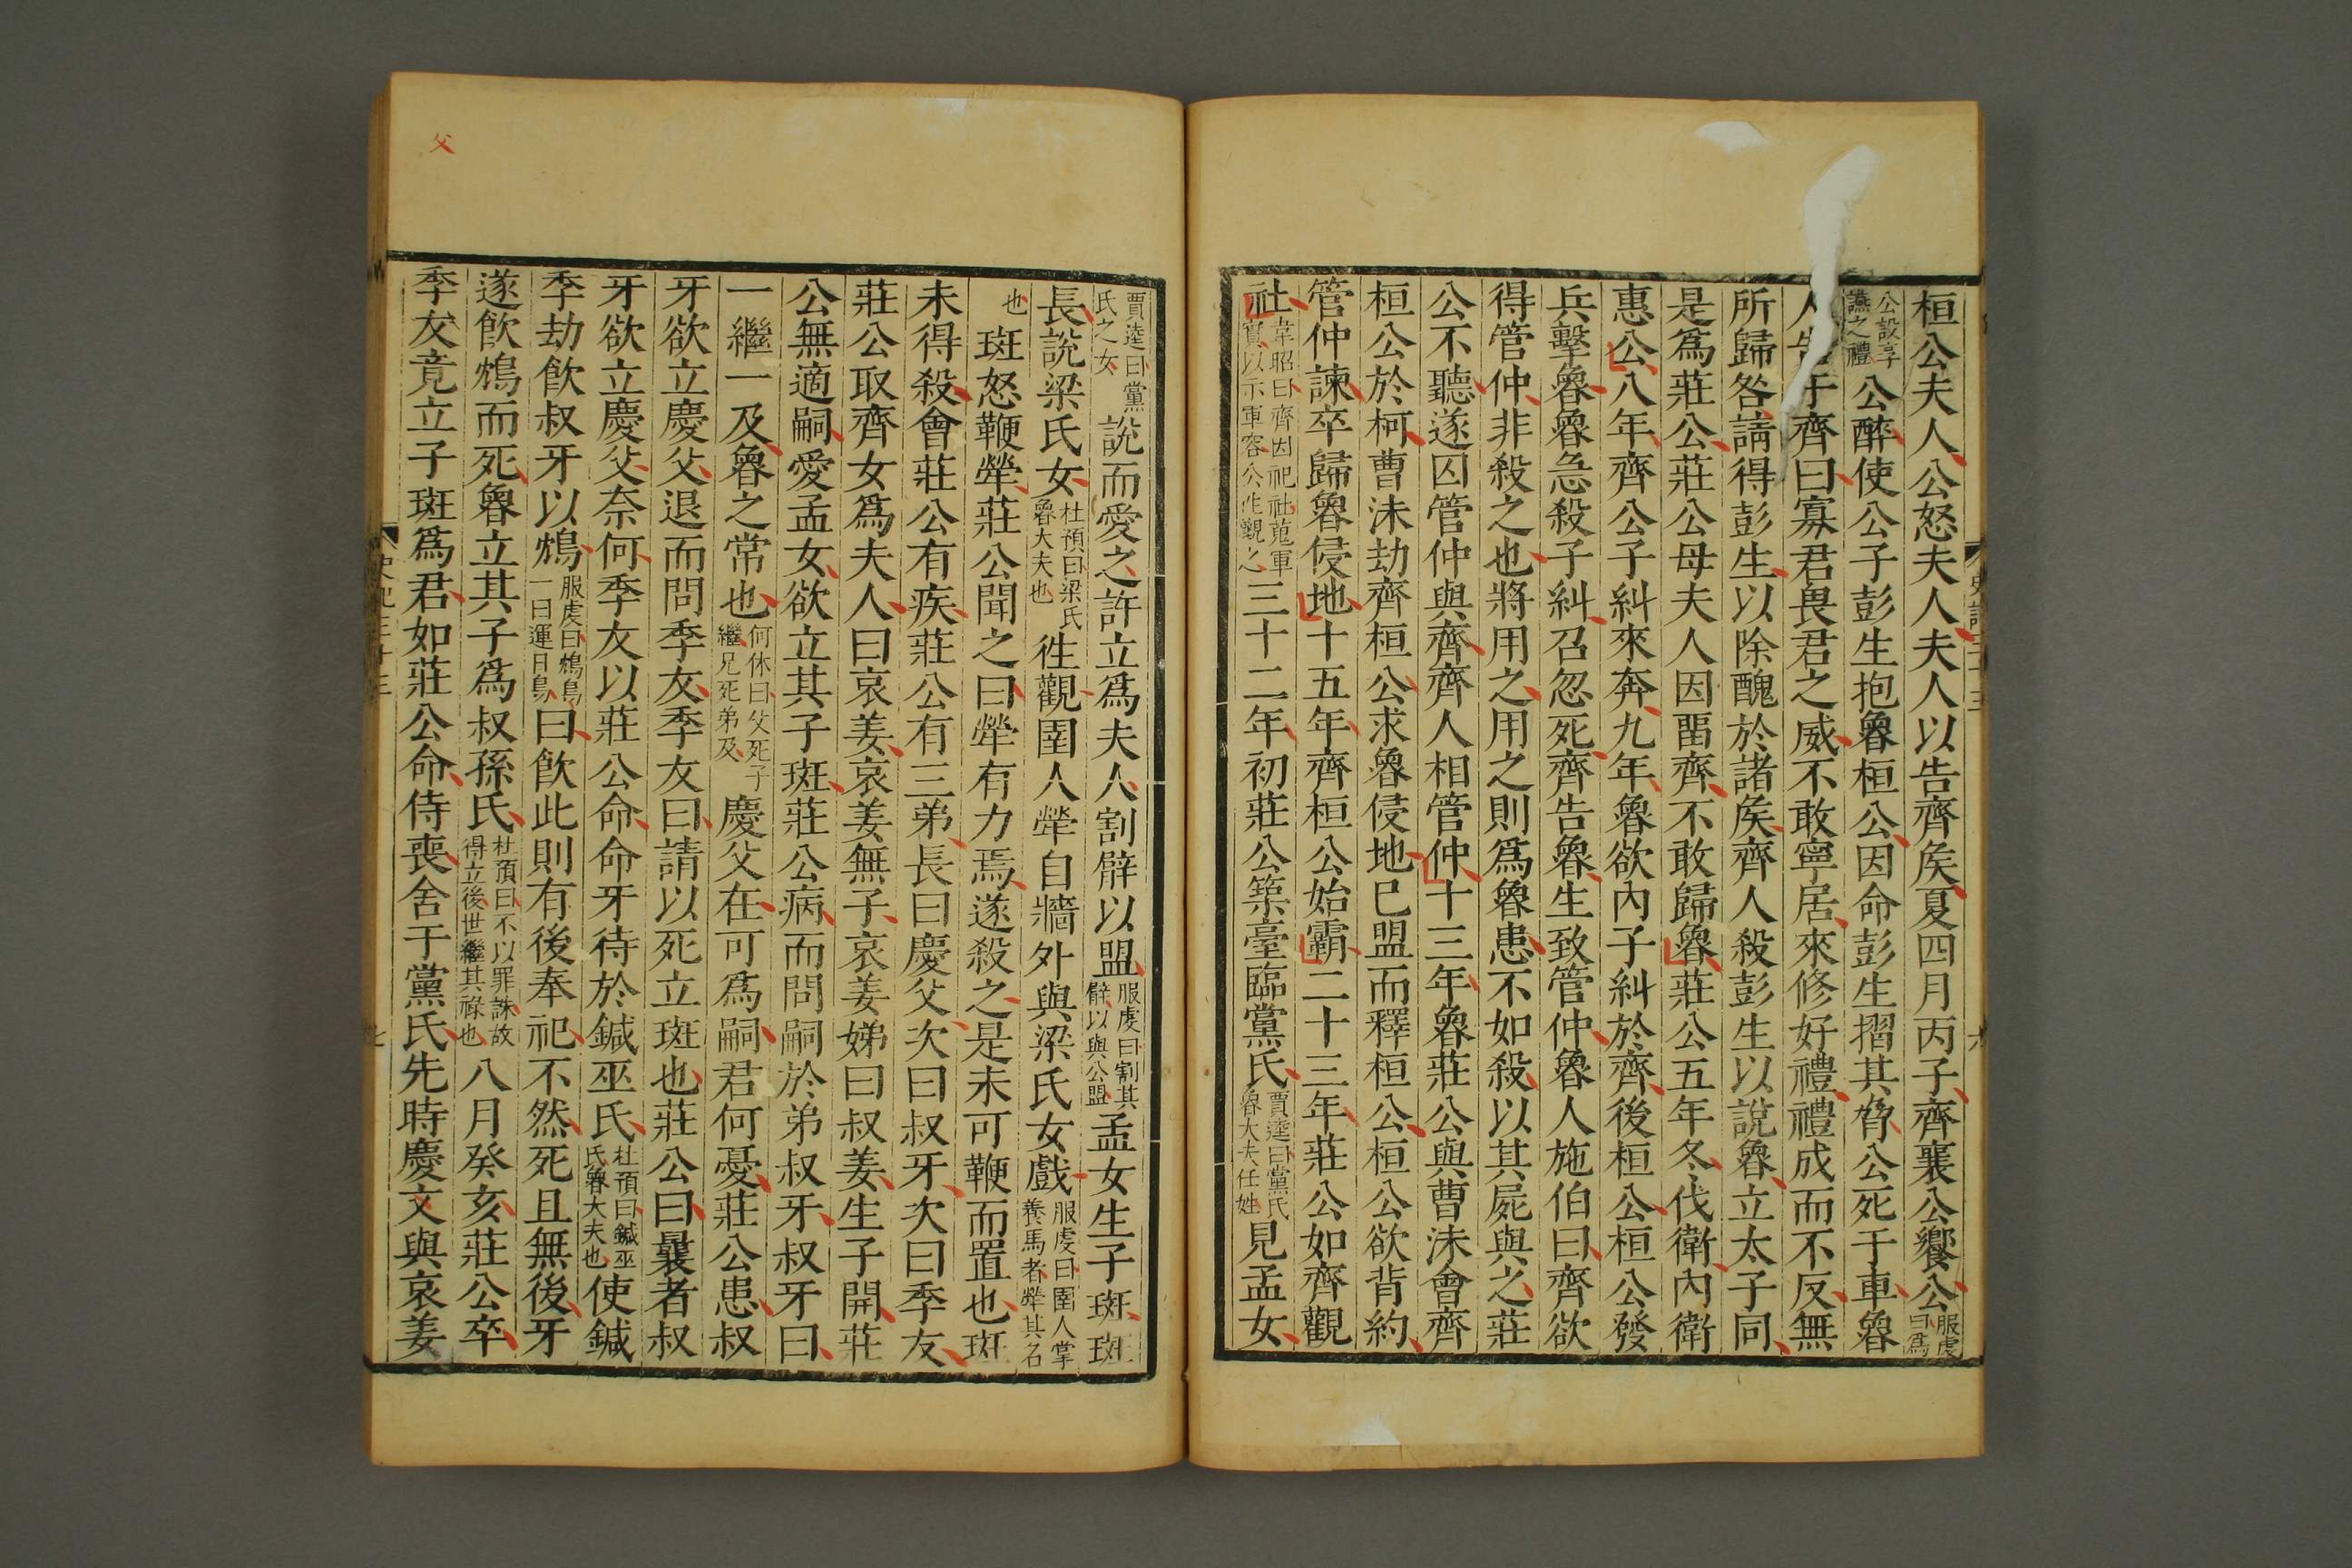 桓公夫人公怒夫人夫人以告齊侯夏四月丙子齊襄公饗公服虔曰爲
公設享讌之禮公醉使公子彭生抱魯桓公因命彭生摺其脅公死于車魯
人告于齊曰寡君畏君之威不敢寧居來修好禮禮成而不反無
所歸咎請得彭生以除醜於諸侯齊人殺彭生以說魯立太子同
是爲莊公莊公母夫人因畱齊不敢歸魯莊公五年冬伐衛內衛
惠公八年齊公子糾來奔九年魯欲內子糾於齊後桓公桓公發
兵擊魯魯急殺子糾召忽死齊告魯生致管仲魯人施伯曰齊欲
得管仲非殺之也將用之用之則爲魯患不如殺以其屍與之莊
公不聽遂囚管仲與齊齊人相管仲十三年魯莊公與曹沬會齊
桓公於柯曹沬劫齊桓公求魯侵地巳盟而釋桓公桓公欲背約
管仲諫卒歸魯侵地十五年齊桓公始霸二十三年莊公如齊觀
社韋昭曰齊因祀社蒐軍實以示軍容公往觀之三十二年初莊公築臺臨黨氏賈逵曰黨氏魯大夫任姓見孟女
史記三十三
六
賈逵曰黨氏之女說而愛之許立爲夫人割臂以盟服虔曰割其臂以與公盟孟女生子斑斑
長說梁氏女杜預曰梁氏魯大夫也徃觀圉人犖自牆外與梁氏女戲服虔曰圉人掌養馬者犖其名
也斑怒鞭犖莊公聞之曰犖有力焉遂殺之是未可鞭而置也斑
未得殺會莊公有疾莊公有三弟長曰慶父次曰叔牙次曰季友
莊公取齊女爲夫人曰哀姜哀姜無子哀姜娣曰叔姜生子開莊
公無適嗣愛孟女欲立其子斑莊公病而問嗣於弟叔牙叔牙曰
一繼一及魯之常也何休曰父死子繼兄死弟及慶父在可爲嗣君何憂莊公患叔
牙欲立慶父退而問季友季友曰請以死立斑也莊公曰曩者叔
牙欲立慶父奈何季友以莊公命命牙待於鍼巫氏杜預曰鍼巫氏魯大夫也使鍼
季劫飮叔牙以鴆服虔曰鴆鳥一曰運日鳥曰飮此則有後奉祀不然死且無後牙
遂飮鴆而死魯立其子爲叔孫氏杜預曰不以罪誅故得立後世繼其祿也八月癸亥莊公卒
季友竟立子斑爲君如莊公命侍喪舍于黨氏先時慶文與哀姜
史記三十三
七
父